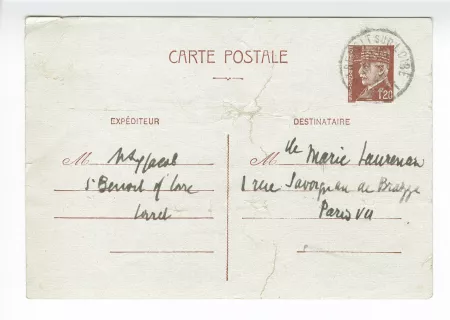 CARTE POSTALE
1,20
EXPÉDITEUR
M Max Jacob
St Benoit s/ Loire
Loiret
DESTINATAIRE
M lle Marie Laurencin
1 rue Savorgnan de Brazza
Paris VII